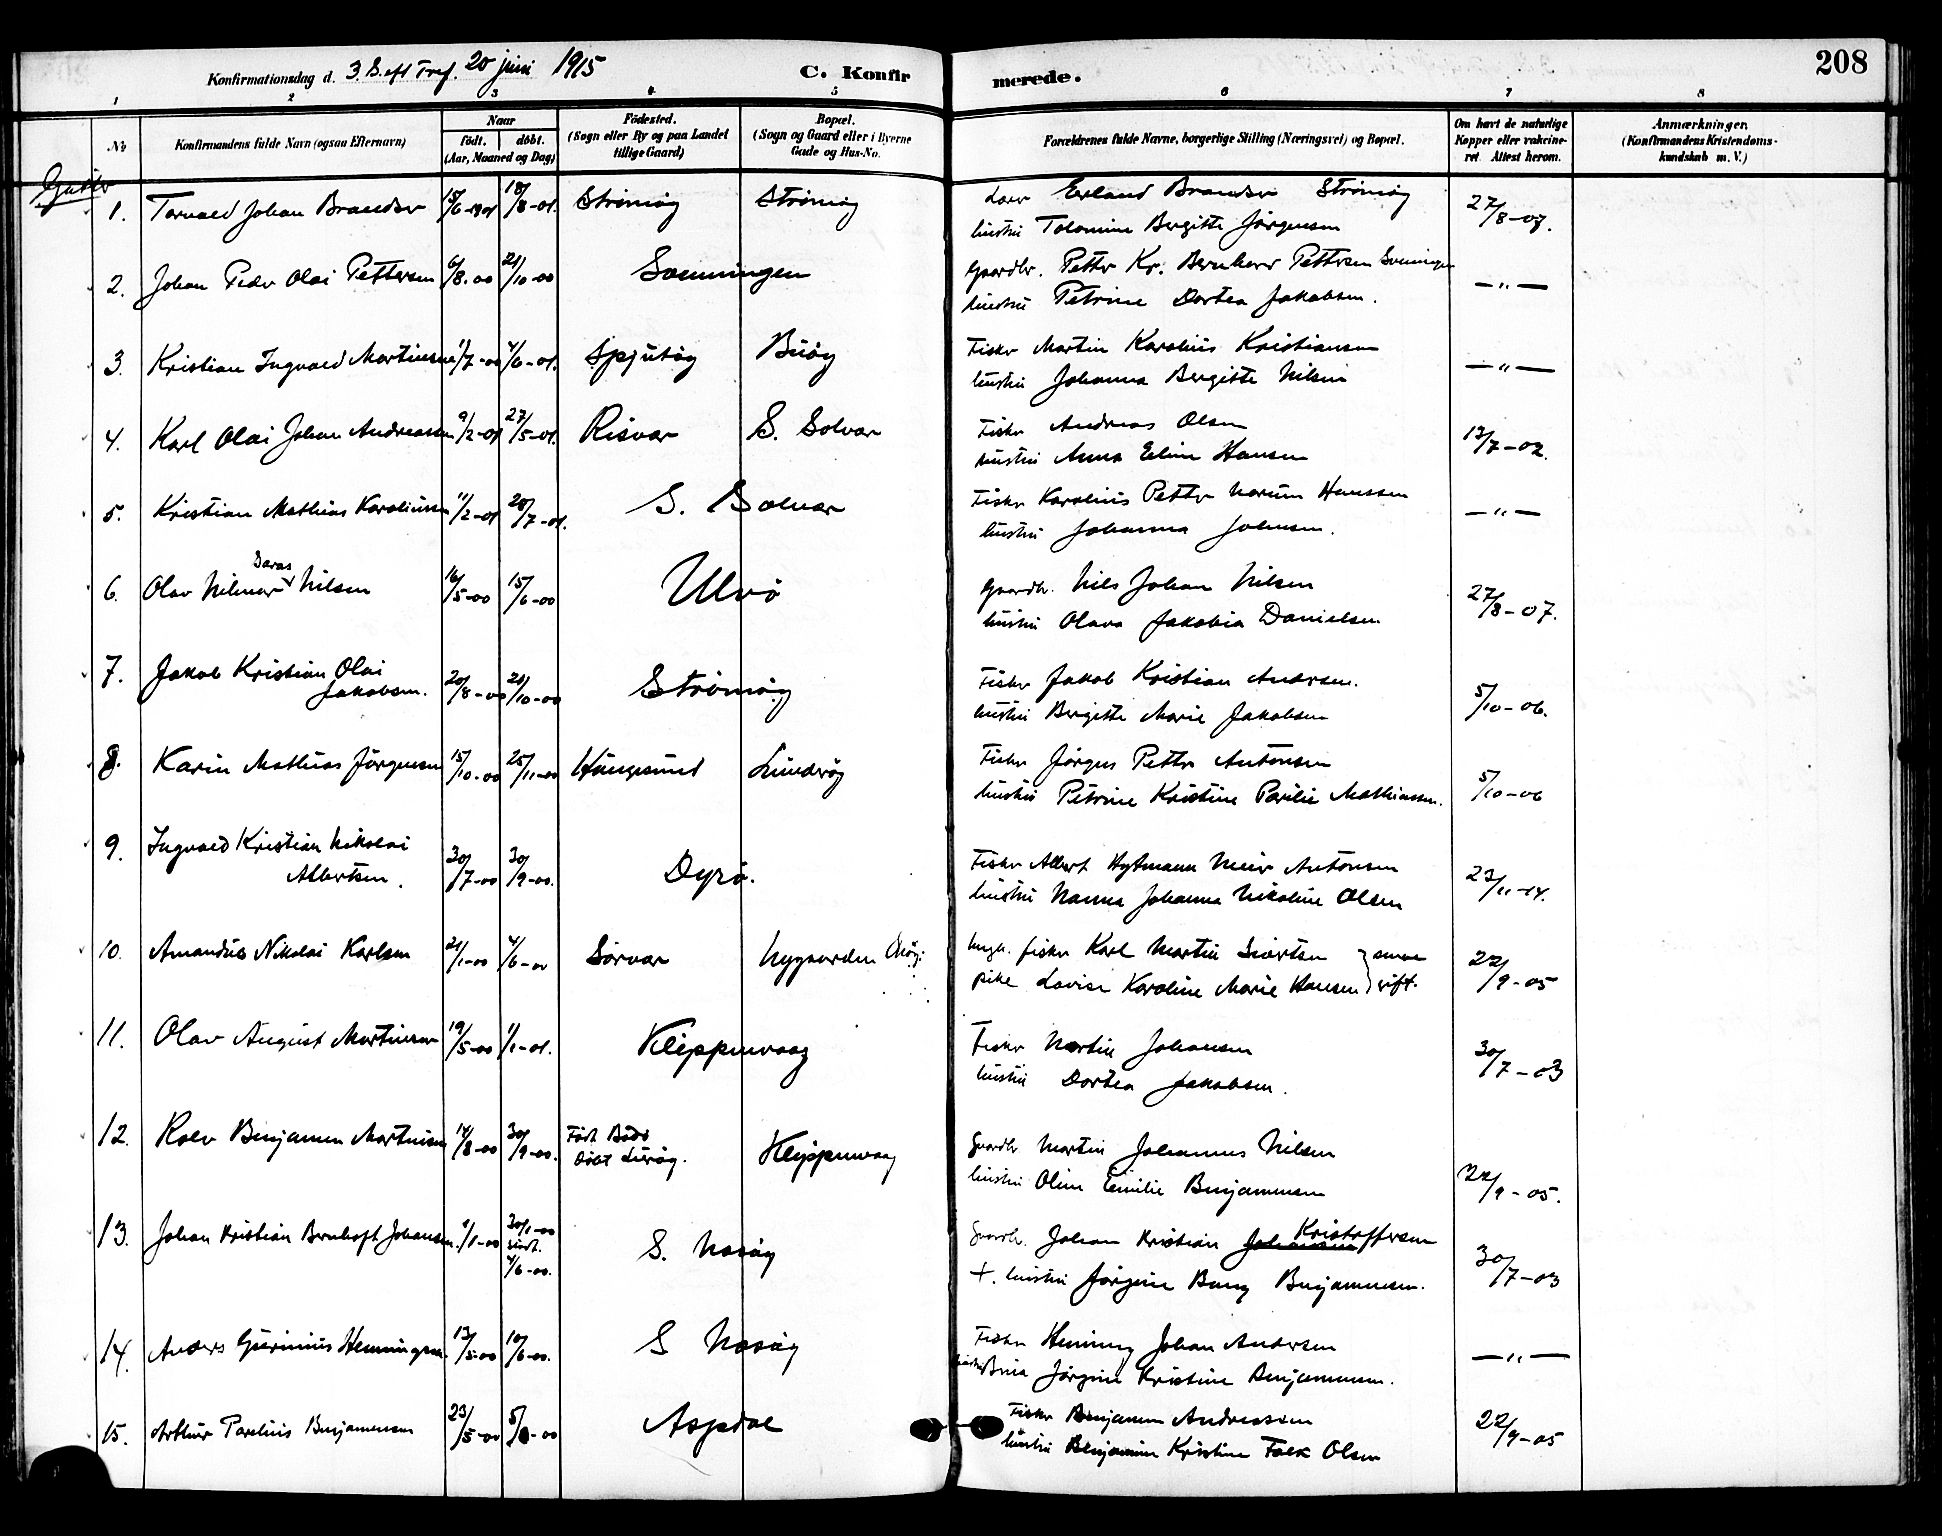 Konfirmationsdag d. 3. S. eft Tref. 20 juni 1915 C. Konfirmerede. 208
1 2 3 4 5 6 7 8
No
Konfirmandens fulde Navn (ogsaa Efternavn)
Naar
født. døbt.
(Aar, Maaned og Dag)
Fødested.
(Sogn eller By og paa Landet
tillige Gaard)
Bopæl.
(Sogn og Gaard eller i Byerne
Gade og Hus-No.
Forældrenes fulde Navne, borgerlige Stilling (Næringsvei) og Bopæl.
Om havt de naturlige
Kopper eller vakcine-
ret. Attest herom.
Anmærkninger.
(Konfirmandens Kristendoms-
kundskab m. V.)
Gutter
1. Torvald Johan Brandser 15/6-1901 18/8-01. Strömöy Strömöy Erland Brandser Strömöy 27/8-07.
hustru Tolomine Bergitte Jörgensen
2. Johan Peder Olai Pettersen 6/8.00 21/10-00 Sömningen Gaardbr. Petter Kr. Bernhard Pettersen
hustru Petrine Dortea Jakobsen. —"—
3. Kristian Ingvald Martinsen 1/7-00 4/6-01. Spjutöy Buöy Fisker Martin Karolius Kristiansen
hustru Johanna Bergitte Nilsen —"—
4. Karl Olai Johan Andreassen 9/2-01 27/5-01. Risvær S. Solvær Fisker Andreas Olsen
hustru Anna Eline Hansen 13/7-02.
5. Kristian Mathias Karoliussen 11/2-01 28/7-01. S. Solvær Fisker Karolius Petter Norum Hanssen
hustru Johanna Johnsen. —"—
6. Olav Hilmar Nilsen 16/5-00 15/6-00 Ulvö Gaardbr. Nils Johan Nilsen
hustru Olava Jakobia Danielsen 27/8-07.
7. Jakob Kristian Olai
Jakobsen. 20/8-00 21/10-00 Strömöy Fisker Jakob Kristian Andersen.
hustru Bergitte Marie Jakobsen 5/10-06.
8. Karin Mathias Jörgensen 15/10-00 25/11-00 Haugesund Lunderöy Fisker Jörgen Petter Antonsen
hustru Petrine Kristine Parilie Mathiassen. 5/10-06
9. Ingvald Kristian Nikolai
Albertsen. 30/7-00 30/9-00. Dyrö. Fisker Albert Hytmann Meier Antonsen
hustru Hanna Johanna Nikoline Olsen 23/11-14.
10. Amandus Nikolai Karlsen 21/1-00 4/6-00 Sörvær Nygaarden Ungk. fisker Karl Martin Sivertsen
pike Lovise Karoline Marie Hansen 22/9-05
11. Olav August Martinsen 19/5-00 1/1-01. Kleppenvaag Fisker Martin Johansen
hustru Dortea Jakobsen. 30/7-03
12. Rolv Benjamin Martinsen 14/8-00 30/9-00. Född Bodö
Döbt Luröy. Kleppenvaag Gaardbr Martin Johannes Nilsen
hustru Oline Emilie Benjaminsen 22/9-05.
13. Johan Kristian Bernhoft Johansen. 1/1-00 30/1-00
4/6-00. S. Nesöy Gaardbr. Johan Kristian Johansen Kristoffersen
+. hustru Jörgine Berg Benjaminsen. 30/7-03
14. Anders Gurinius Henningsen. 13/5-00 10/6-00. S Nesöy Fisker Henning Johan Andersen
hustru Brita Jörgine Kristine Benjaminsen. —"—
15. Arthur Parelius Benjaminsen 23/5-00 5/8-00 Aspdal Fisker Benjamin Andreassen
hustru Benjamine Kristine Falk Olsen 22/9-05